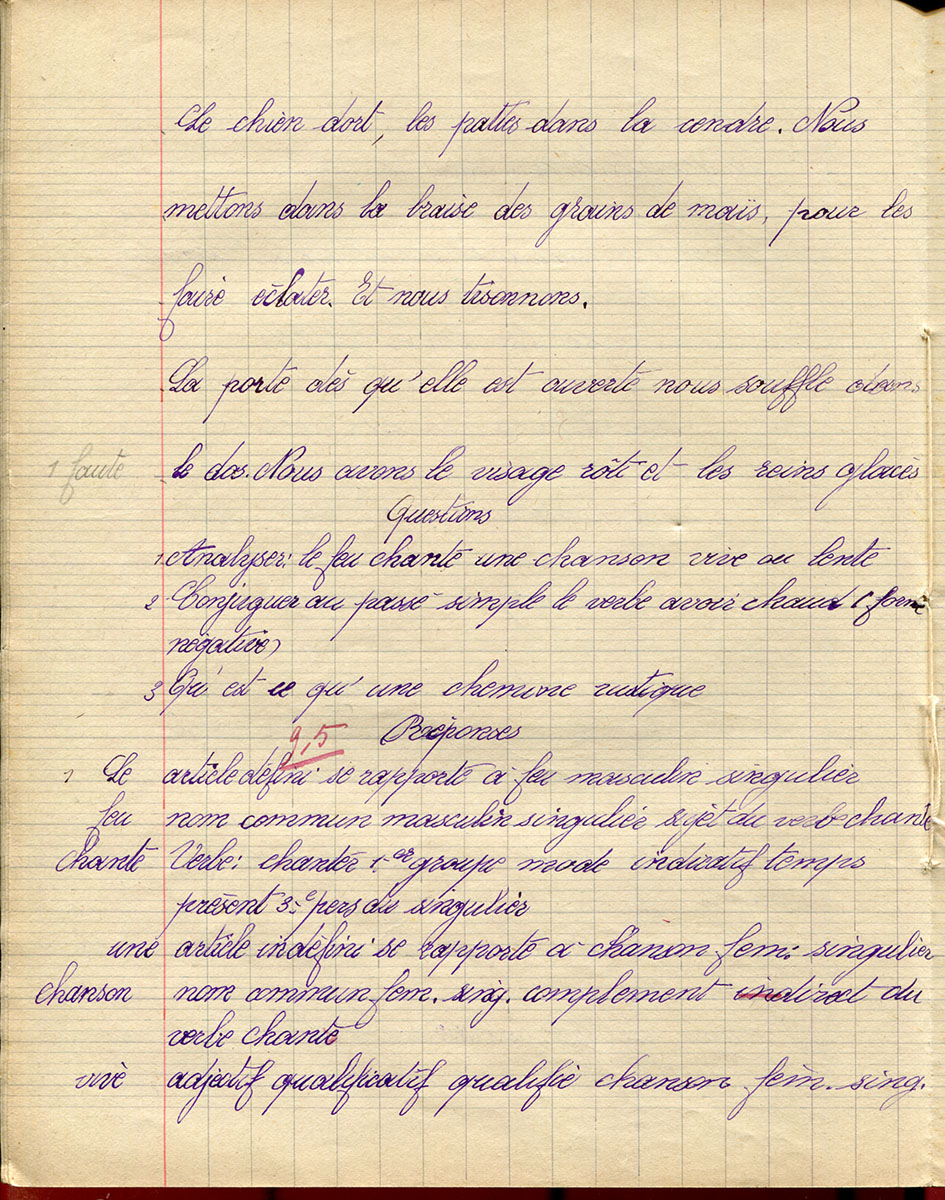 Le chien dort, les pattes dans la cendre. Nous
mettons dans la braise des grains de maïs, pour les
faire éclater. Et nous tisonnons.
La porte dès qu'elle est ouverte nous souffle dans
1 faute le dos. Nous avons le visage rôti et les reins glacés
Questions
1 Analyser: le feu chante une chanson vive ou lente
2 Conjuguer au passé simple le verbe avoir chaud (forme
négative)
3 Qu'est ce qu'une cheminé rustique
9,5 Réponses
1 Le article défini se rapporte à feu masculin singulier
feu nom commun masculin singulier sujet du verbe chante
chante Verbe: chanter 1er groupe mode indicatif temps
présent 3e pers du singulier
une article indéfini se rapporte à chanson fem. singulier
chanson nom commun fem. sing. complement indirect du
verbe chante
vive adjectif qualificatif qualifie chanson fem. sing.